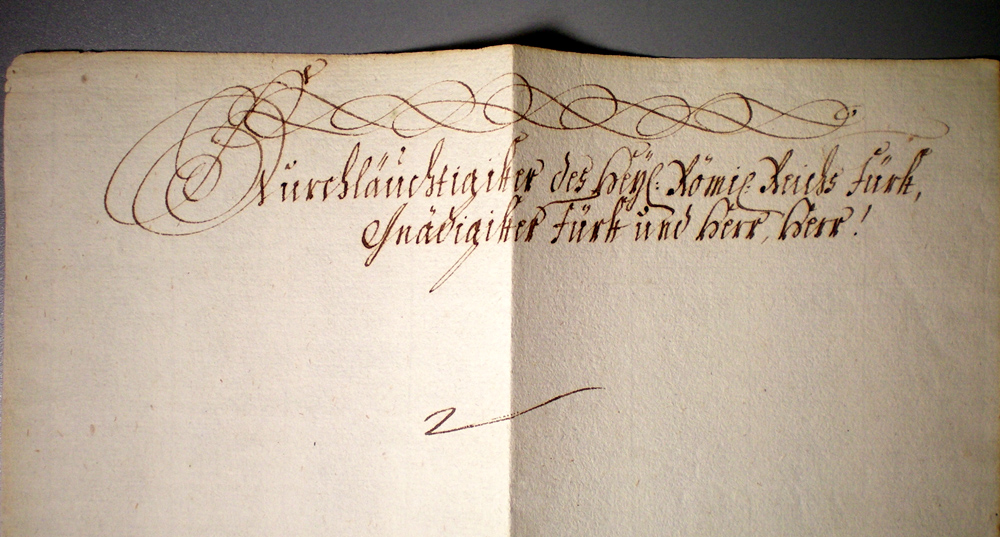 Durchläuchtigister des Heyl: Römis: Reichs Fürst,
Gnädigister Fürst und Herr, Herr!